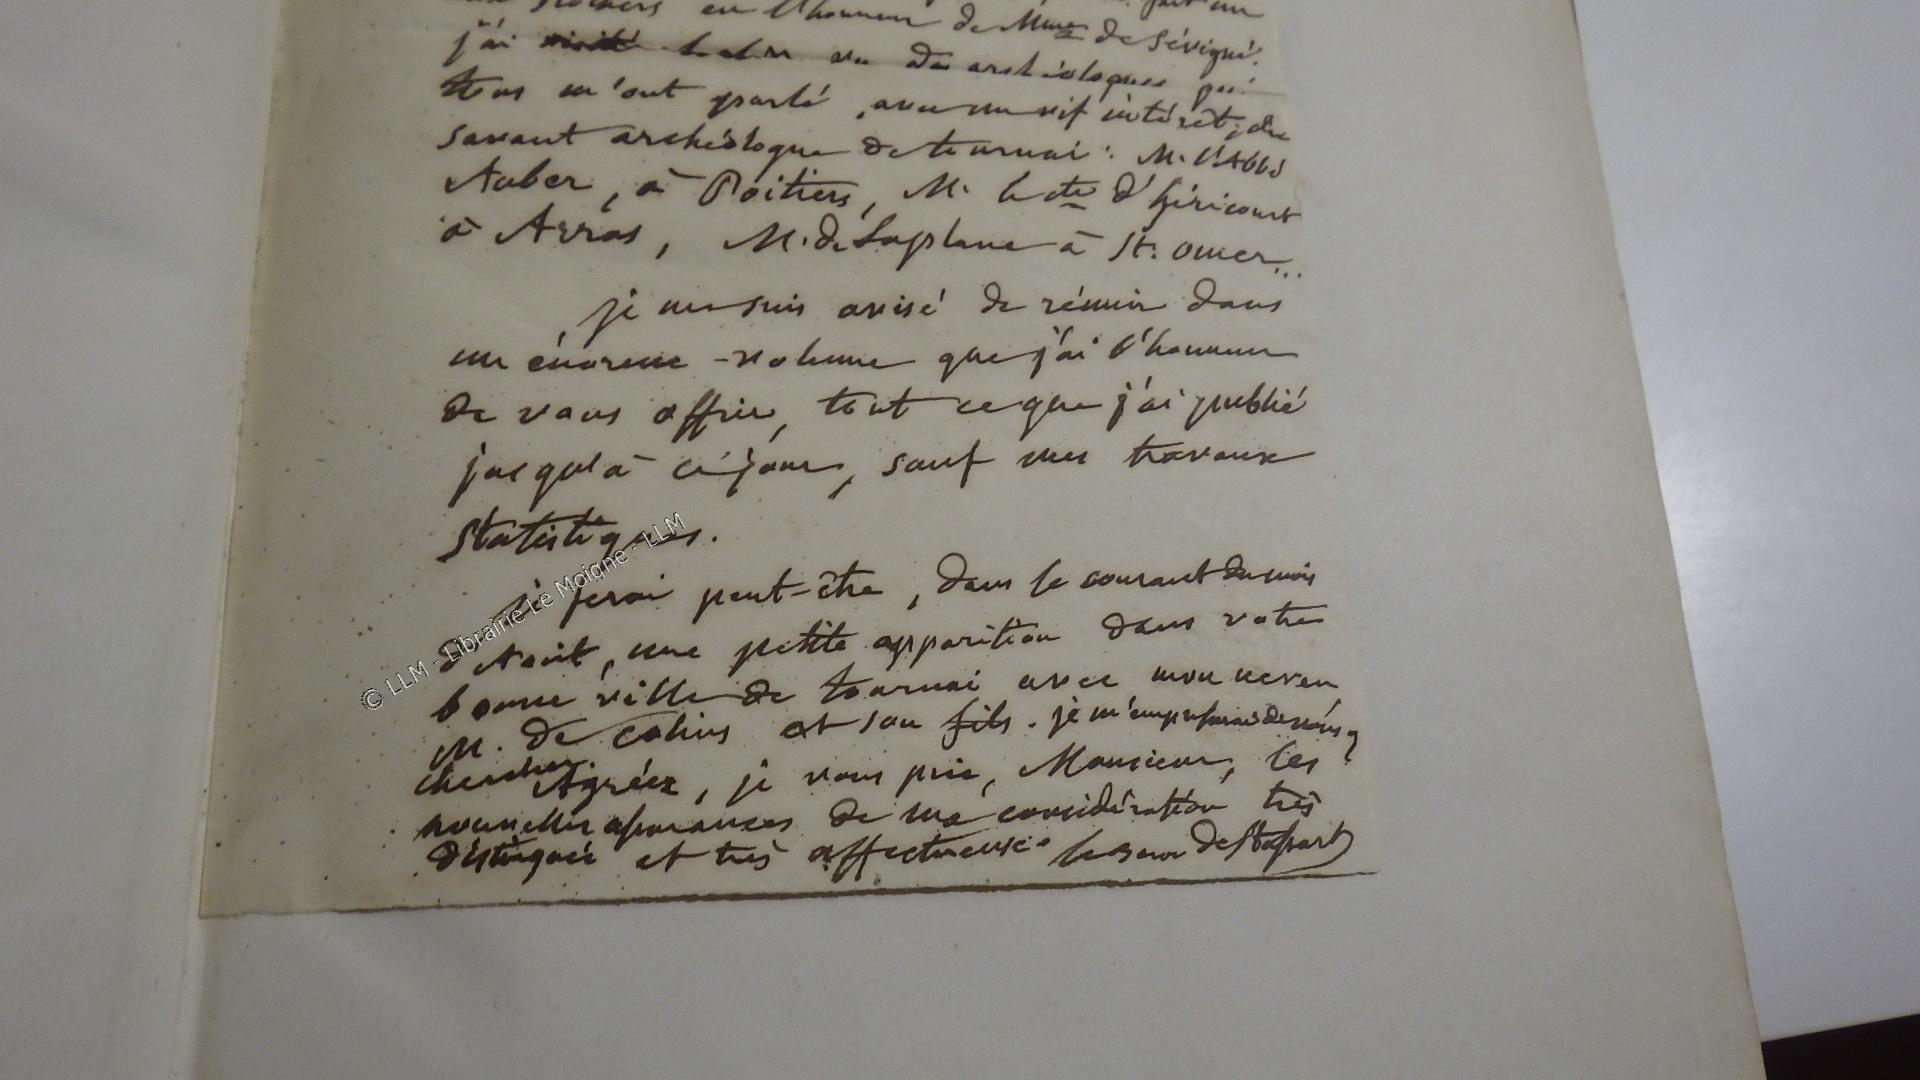 aux Rochers en l'honneur de Mme de Sévigné.
j'ai vu des archéologues qui
tous m'ont parlé, avec un vif intérêt, du
savant archéologue de tournai : M. l'Abbé
Auber, à Poitiers, M. le cte d'héricourt
à Arras, M. de Laplane à St. omer...
je me suis avisé de réunir dans
un énorme volume que j'ai l'honneur
de vous offrir, tout ce que j'ai publié
jusqu'à ce jour, sauf mes travaux
statistiques.
Je ferai peut-être, dans le courant du mois
d'Aout, une petite apparition dans votre
bonne ville de tournai avec mon neveu
M. de Colins et son fils. je m'empresserai de vous y
chercher.
Agréez, je vous prie, Monsieur, les
nouvelles assurances de ma considération très
distinguée et très affectueuse. le Baron de Stassart
© LLM - Librairie Le Moigne - LLM